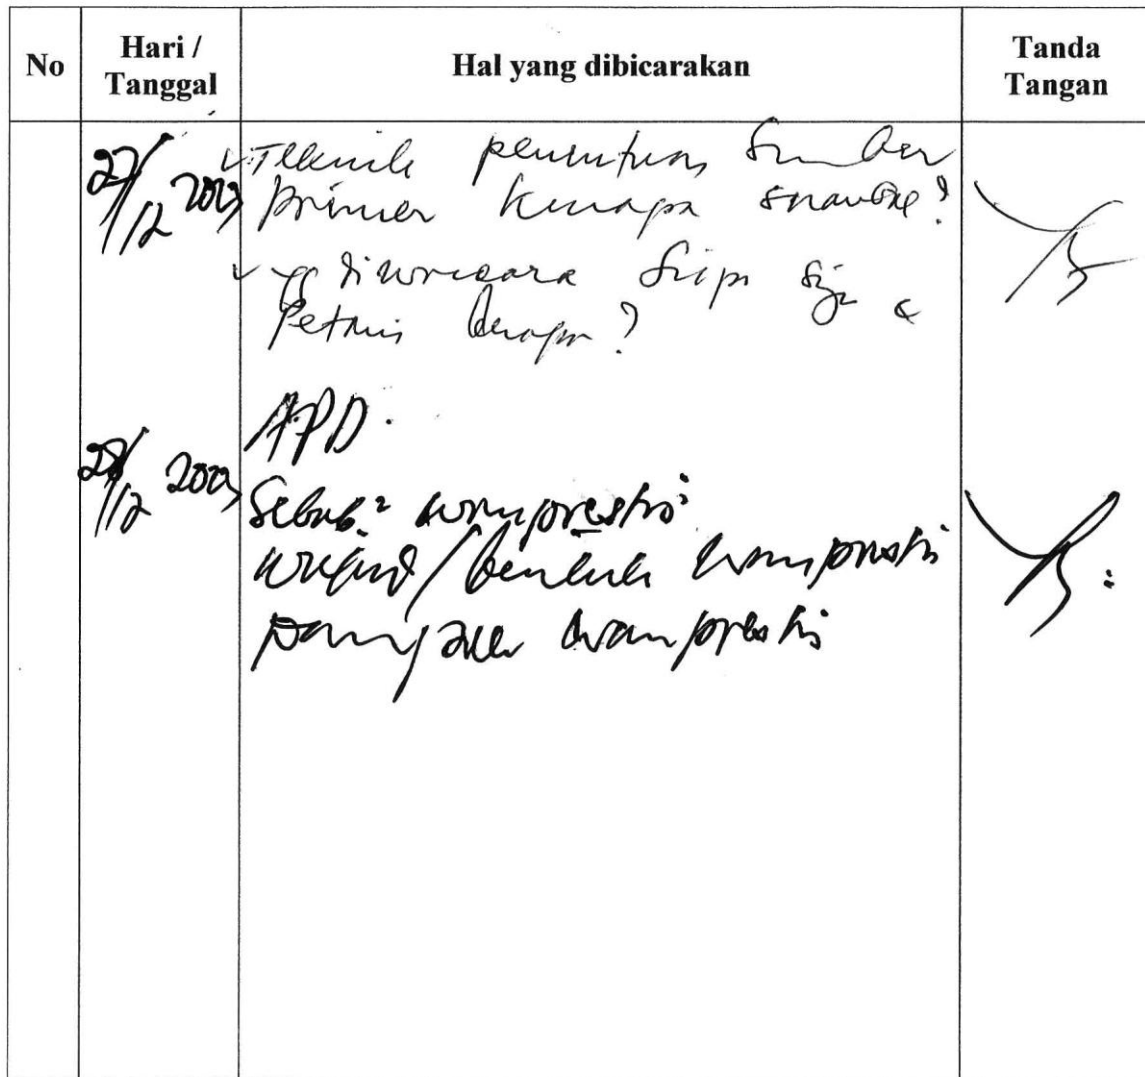 No
Hari / Tanggal
Hal yang dibicarakan
Tanda Tangan
27/12 2023
Teknik penentuan Sumber
primer kenapa snowball?
yg diwawancara siapa saja &
Petani berapa?
APD.
28/12 2023
Sebab² wanprestasi
wujud/bentuk wanprestasi
wanprestasi